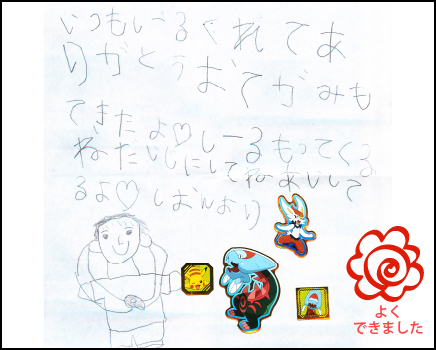 いつもしーるくれてあ
りがとう おてがみも
できたよ♡しーるもってくる
ね たいじにしてねあいしてる
るよ♡ しおんより
よく
できました